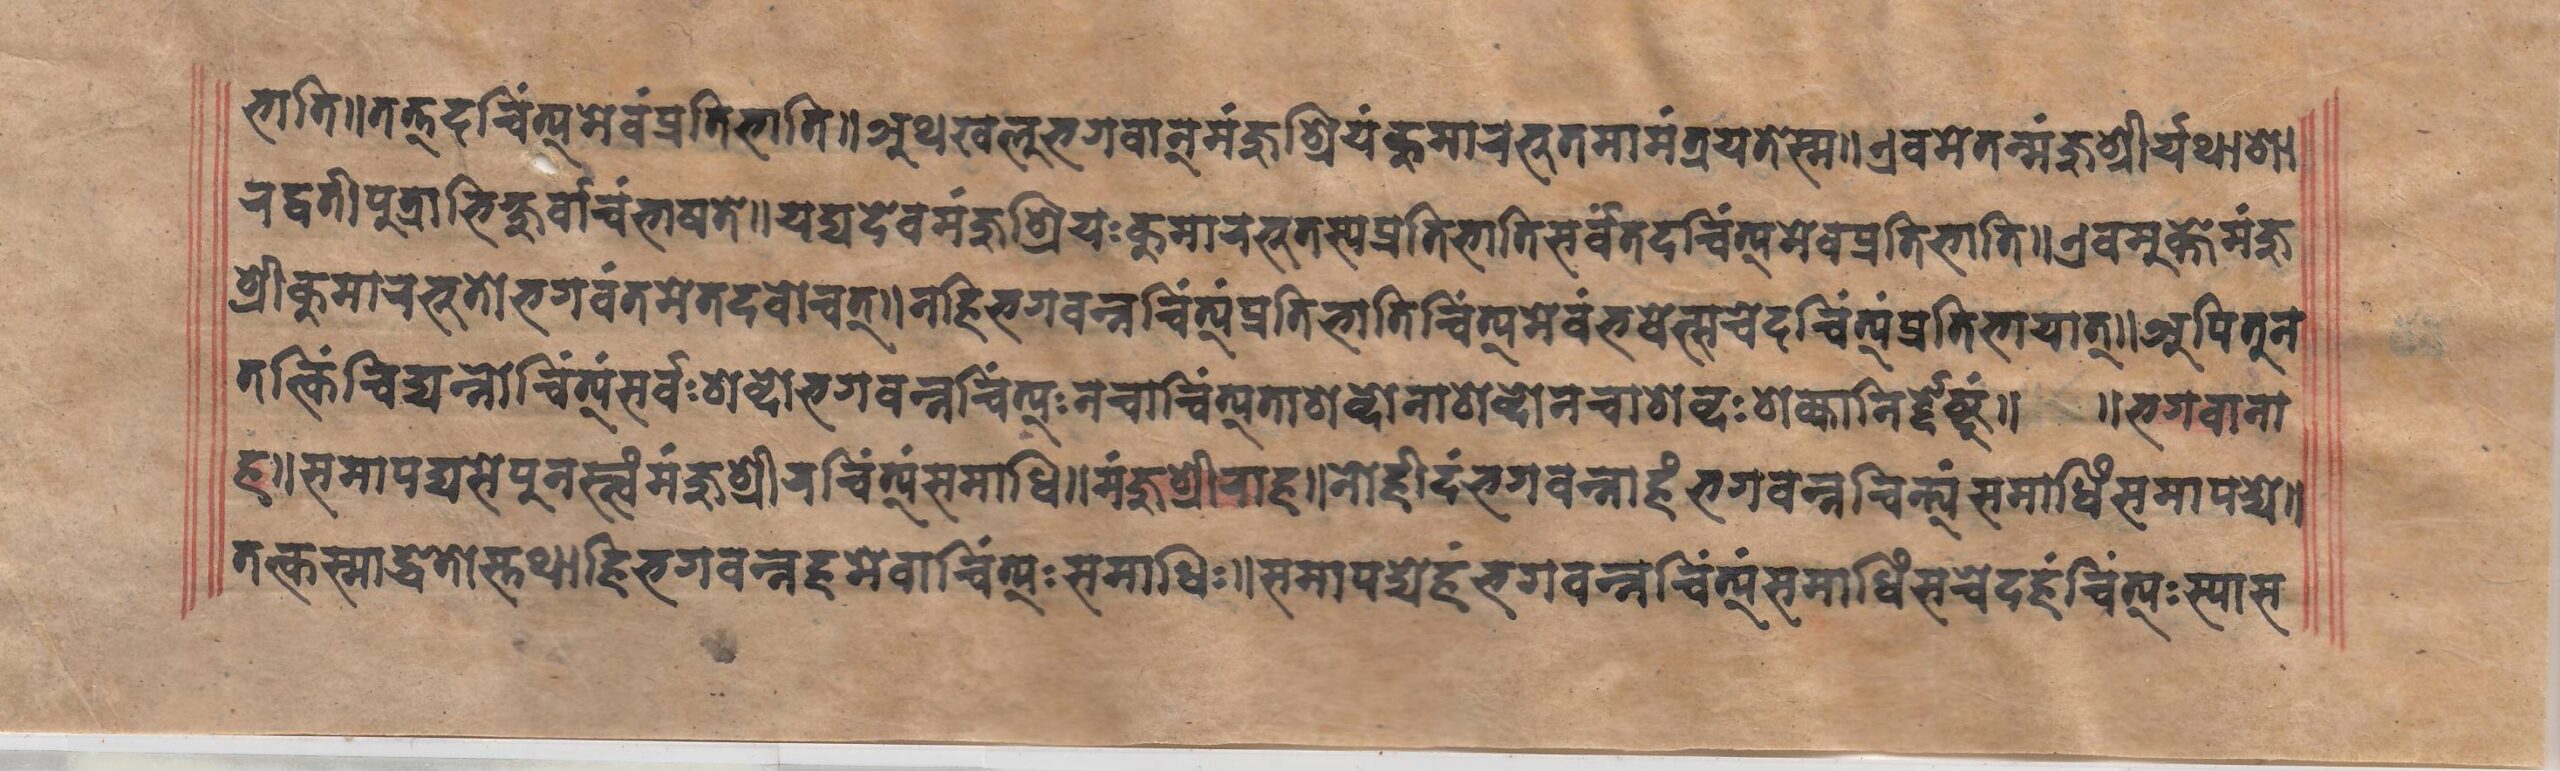 भाति॥तत्तदचिंत्यमेवंप्रतिभाति॥अथखलुभगवान्मंजुश्रियंकुमारभूतमामंत्रयतेस्म॥एवमेतन्मंजुश्रीर्यथाशा
रद्वतीपुत्राभिक्षुर्वाचंभाषते॥यद्यदेवमंजुश्रियःकुमारभूतस्यप्रतिभातिसर्वंतदचिंत्यमेवप्रतिभाति॥एवमुक्तेमंजु
श्रीकुमारभूतोभगवंतमेतदवोचत्॥नहिभगवन्नचिंत्यंप्रतिभातिचिंत्यमेवंभवेत्सचेदचिंत्यंप्रतिभायात्॥अपितुन
तत्किंचिद्यन्नोचिंत्यंसर्वःशब्दोभगवन्नचिंत्यःनचाचिंत्यताशब्दोनाशब्दोनचाशब्दःशक्यानिर्द्देष्टुं॥ ॥भगवाना
ह॥समापद्यसेपुनस्त्वंमंजुश्रीरचिंत्यंसमाधि॥मंजुश्रीराह॥नोहीदंभगवन्नाहं भगवन्नचिन्त्यं समाधिंसमापद्ये॥
तत्कस्माद्धेतोस्तथाहिभगवन्नहमेवाचिंत्यःसमाधिः॥समापद्येहंभगवन्नचिंत्यंसमाधिंसचेदहंचिंत्यःस्यास